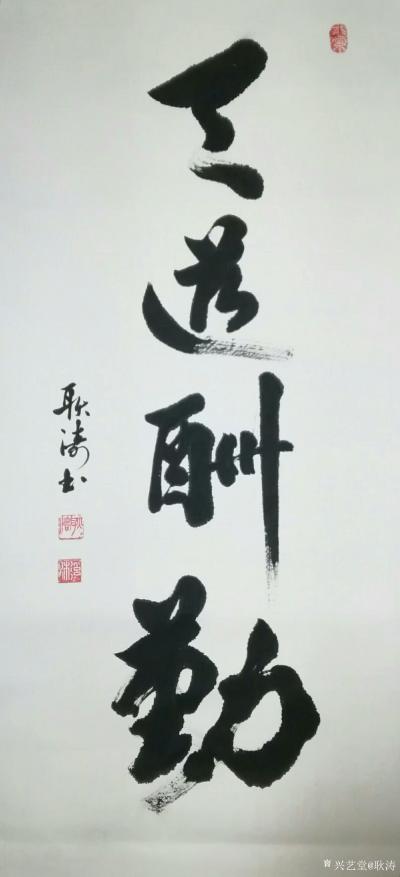 天道酬勤
耿涛书
兴艺堂@耿涛